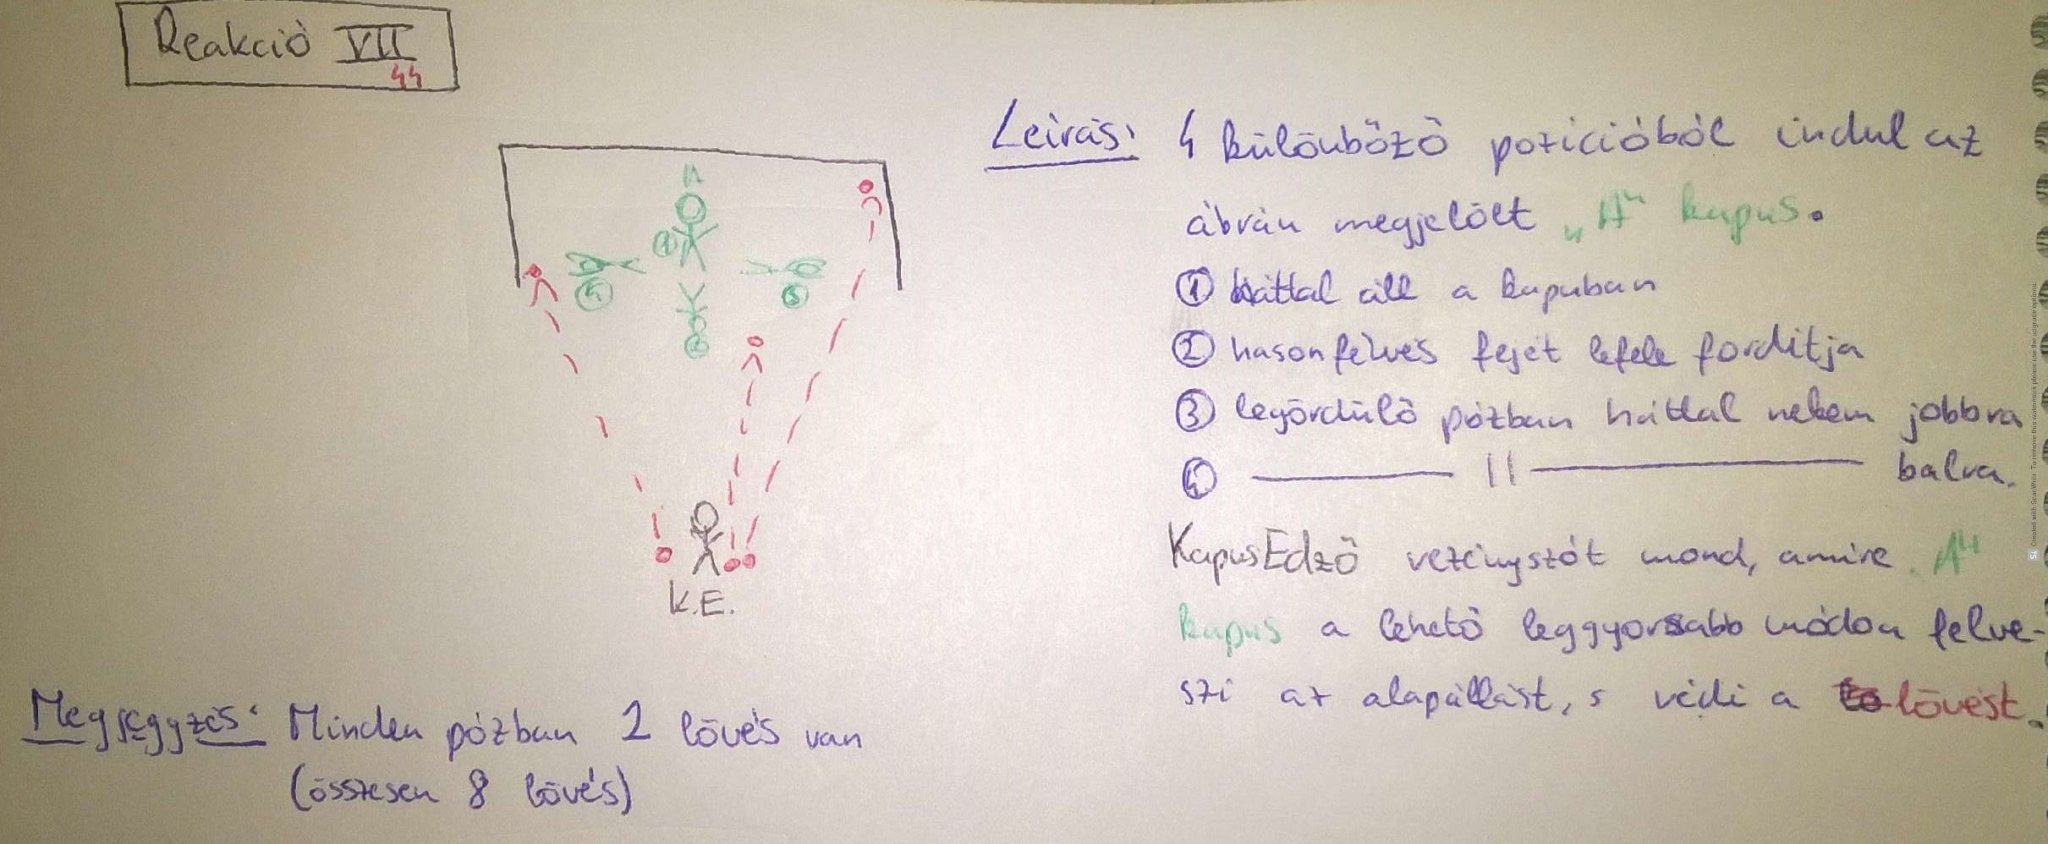 Reakció VII
44
Leírás: 4 különböző pozícióból indul az
ábrán megjelölt „A" kapus.
① háttal áll a kapuban
② hasonfekvés fejét lefele fordítja
③ legördülő pózban háttal nekem jobbra
④ —— || —— balra.
KapusEdző vezényszót mond, amire „A"
kapus a lehető leggyorsabb módon felve-
szi az alapállást, s védi a lövést.
A
①
④
③
②
K.E.
Megjegyzés: Minden pózban 2 lövés van
(összesen 8 lövés)